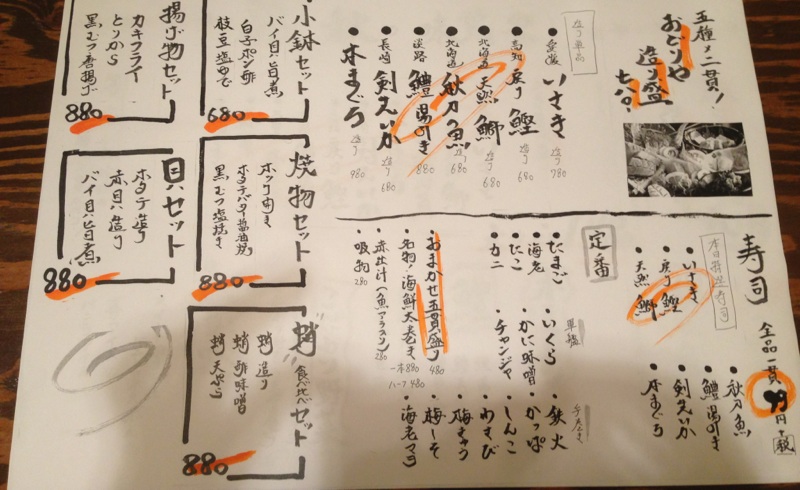 五種×二貫!
おどりや
造り盛
七八〇
造り単品
・愛媛 いさき 造り 780
・高知 戻り鰹 造り 680
・北海道 天然鰤 造り 680
・北海道 秋刀の魚 造り 680
・淡路 鱧湯引き 880
・長崎 剣先いか 造り 680
・本まぐろ 造り 980
小鉢セット
バイ貝旨煮
白子ポン酢
枝豆塩ゆで
680
揚げ物セット
カキフライ
とりから
黒むつ唐揚げ
880
焼物セット
ホッケ開き
ホタテバター醤油焼
黒むつ塩焼き
880
貝ハセット
ホタテ造り
赤貝造り
バイ貝旨煮
880
蛸食べ比べセット
蛸造り
蛸酢味噌
蛸天ぷら
880
寿司 全品一貫99円+税
本日特選寿司
・いさき
・戻り鰹
・天然鰤
・秋刀魚
・鱧湯引き
・剣先いか
・本まぐろ
定番
・たまご
・海老
・たこ
・カニ
軍艦
・いくら
・かに味噌
・チャンジャ
手巻き
・鉄火
・かっぱ
・しんこ
・わさび
・梅キュウ
・梅しそ
・海老マヨ
・おまかせ五貫盛り 480
・名物!海鮮太巻き 一本880 ハーフ480
・赤出汁(魚アラ入り) 280
・吸物 280